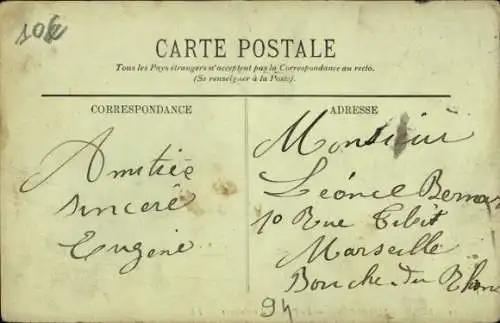 10€
CARTE POSTALE
Tous les Pays étrangers n'acceptent pas la Correspondance au recto.
(Se renseigner à la Poste).
CORRESPONDANCE
Amitiée
sincere
Eugène
ADRESSE
Monsieur
Léonce
10 Rue Tibit
Marseille
Bouche-du-Rhône
94